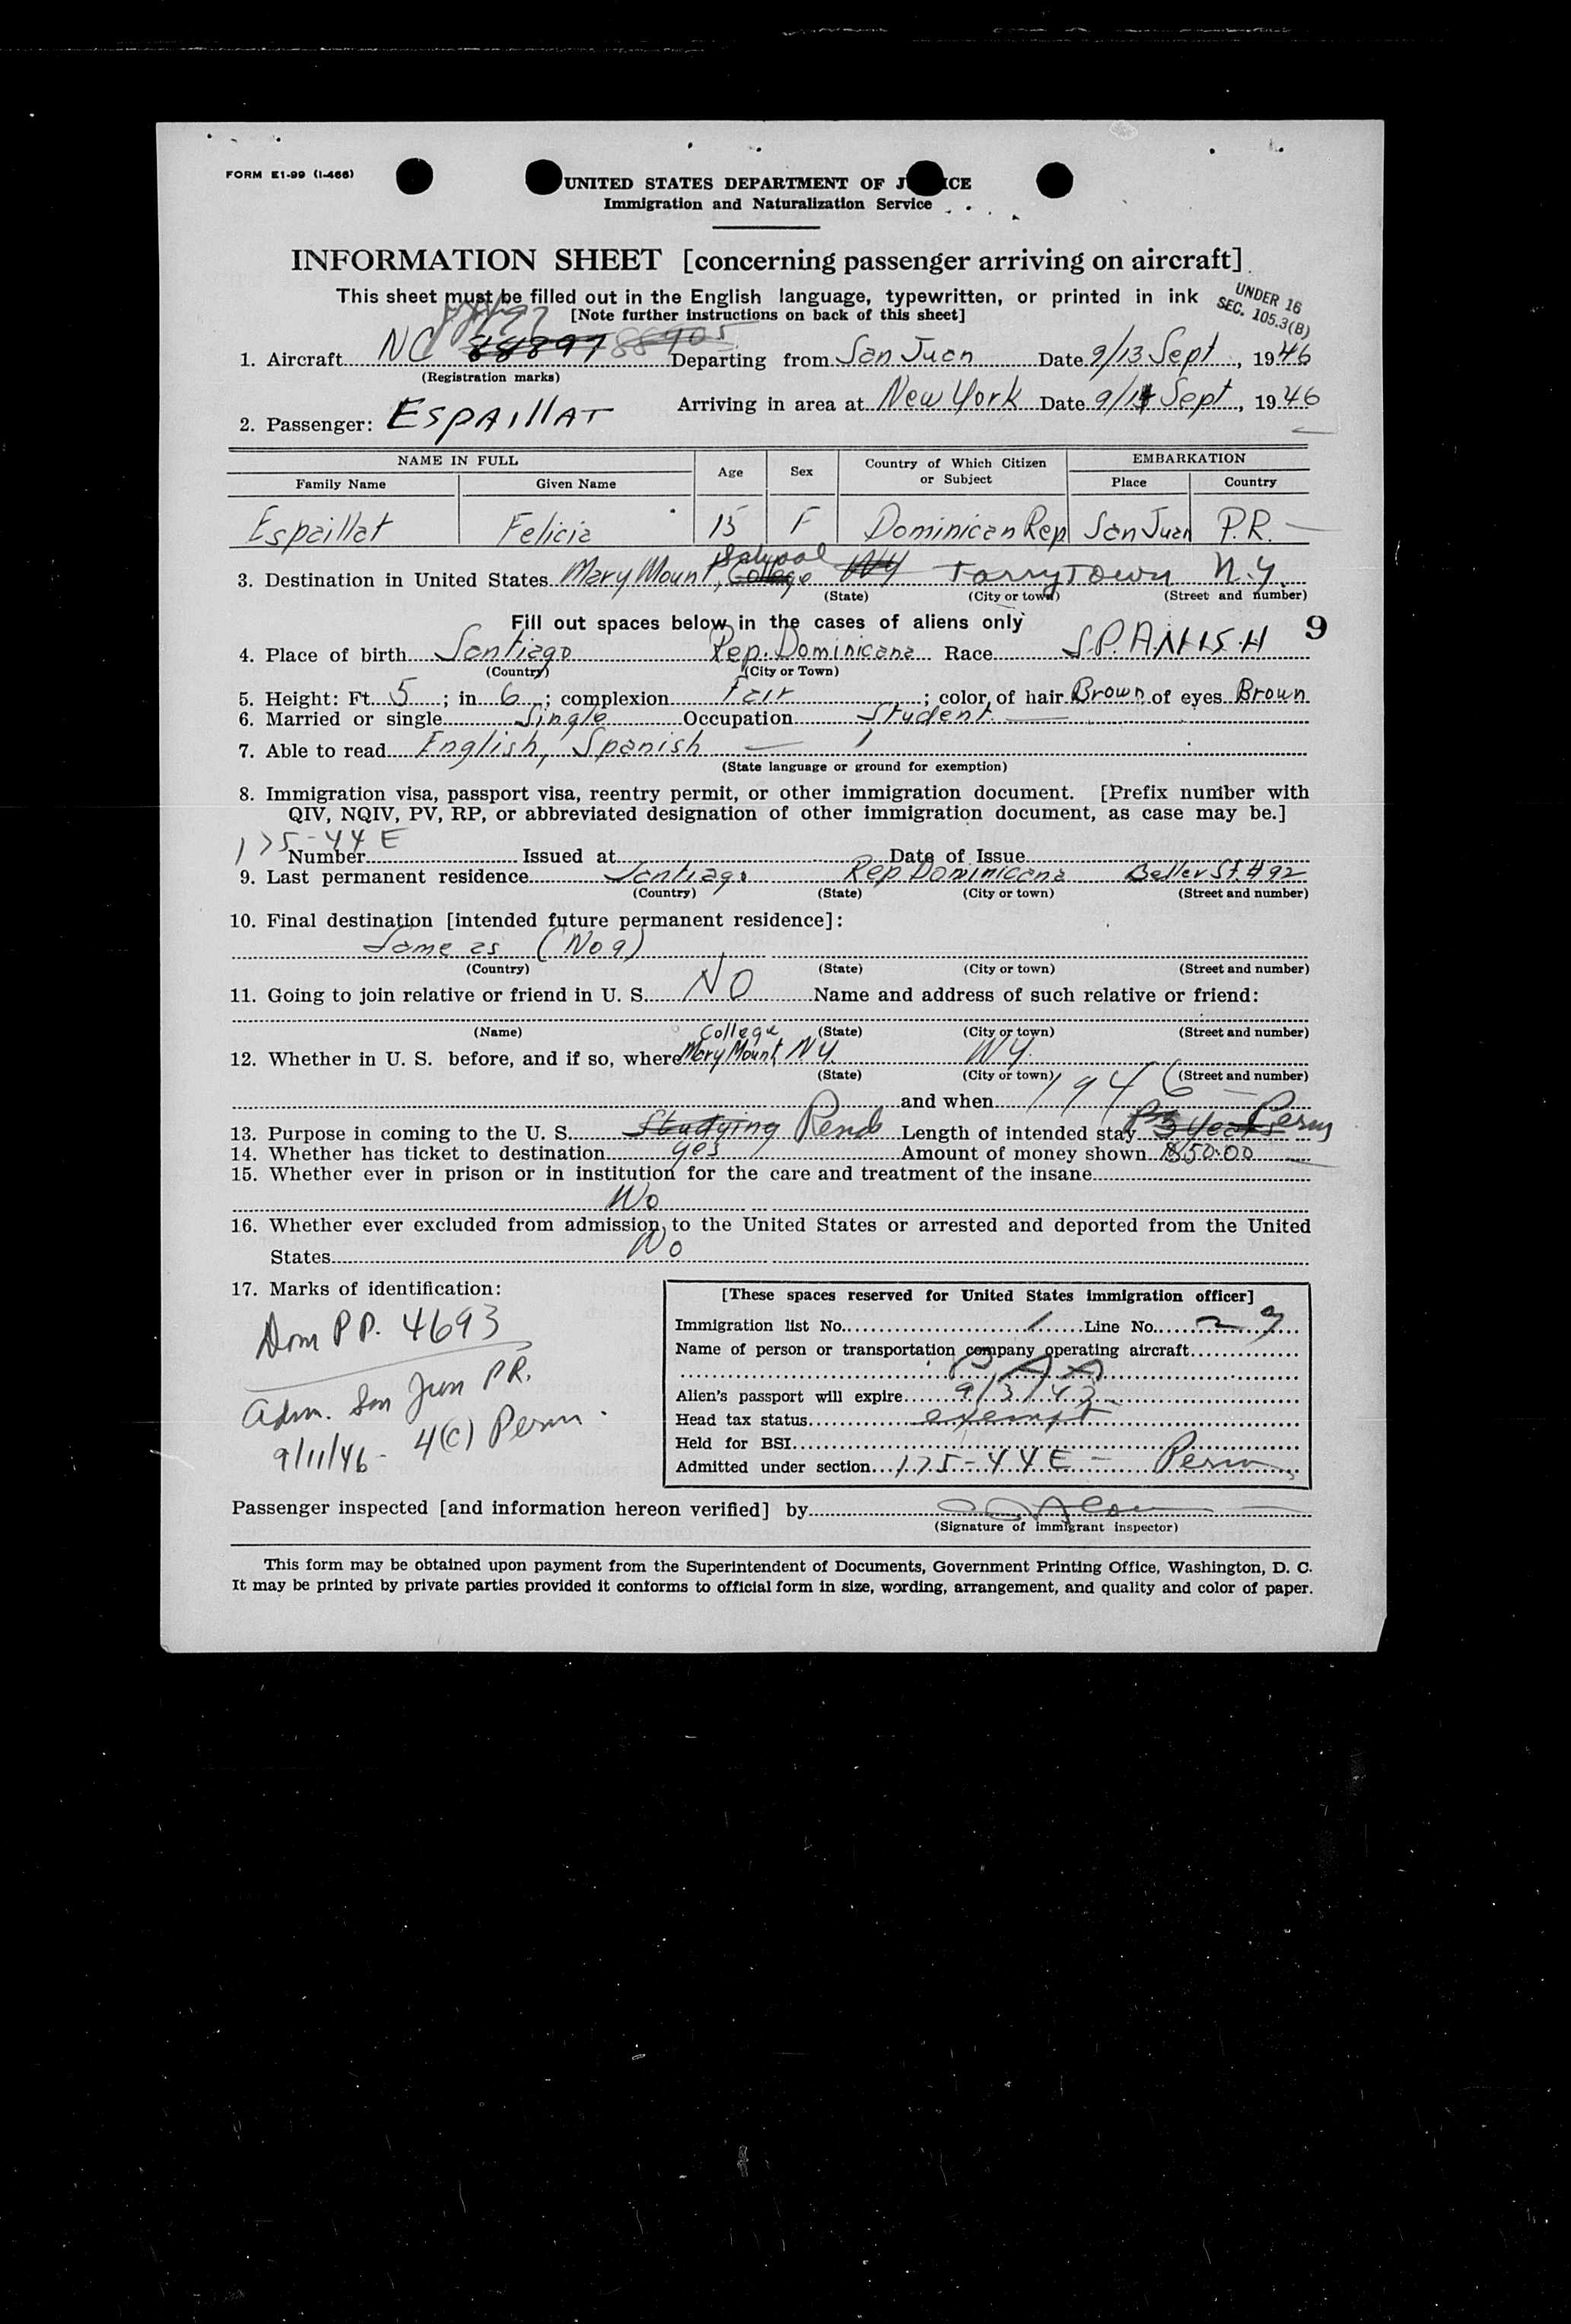 FORM E1-99 (I-466)
UNITED STATES DEPARTMENT OF J ICE
Immigration and Naturalization Service
INFORMATION SHEET [concerning passenger arriving on aircraft]
This sheet must be filled out in the English language, typewritten, or printed in ink
[Note further instructions on back of this sheet]
UNDER 16
SEC. 105.3(B)
1. Aircraft NC 88897 88905 Departing from San Juan Date 9/13 Sept, 1946
(Registration marks)
Arriving in area at New York Date 9/14 Sept, 1946
2. Passenger: ESPAILLAT
NAME IN FULL Age Sex Country of Which Citizen or Subject EMBARKATION
Family Name Given Name Place Country
Espaillat Felicia 15 F Dominican Rep San Juan P.R.
3. Destination in United States Mary Mount, College NY Tarrytown N.Y.
(State) (City or town) (Street and number)
Fill out spaces below in the cases of aliens only 9
4. Place of birth Santiago Rep. Dominicana Race SPANISH
(Country) (City or Town)
5. Height: Ft. 5; in 6; complexion Fair; color of hair Brown of eyes Brown
6. Married or single Single Occupation Student
7. Able to read English, Spanish
(State language or ground for exemption)
8. Immigration visa, passport visa, reentry permit, or other immigration document. [Prefix number with
QIV, NQIV, PV, RP, or abbreviated designation of other immigration document, as case may be.]
175-44 E
Number Issued at Date of Issue
9. Last permanent residence Santiago Rep Dominicana Beller St #92
(Country) (State) (City or town) (Street and number)
10. Final destination [intended future permanent residence]:
Same as (No 9)
(Country) (State) (City or town) (Street and number)
11. Going to join relative or friend in U. S. NO Name and address of such relative or friend:
(Name) (State) (City or town) (Street and number)
College
12. Whether in U. S. before, and if so, where Mary Mount, NY. NY.
(State) (City or town) (Street and number)
and when 1946
13. Purpose in coming to the U. S. Studying Length of intended stay 3 years Perm
14. Whether has ticket to destination yes Amount of money shown $50.00
15. Whether ever in prison or in institution for the care and treatment of the insane
No
16. Whether ever excluded from admission to the United States or arrested and deported from the United
States No
17. Marks of identification:
Dom PP. 4693
Adm. San Juan PR.
9/11/46 - 4(C) Perm.
[These spaces reserved for United States immigration officer]
Immigration list No. 1 Line No. 29
Name of person or transportation company operating aircraft
P A A
Alien's passport will expire 9/3/47
Head tax status exempt
Held for BSI
Admitted under section 175-44 E - Perm
Passenger inspected [and information hereon verified] by
(Signature of immigrant inspector)
This form may be obtained upon payment from the Superintendent of Documents, Government Printing Office, Washington, D. C.
It may be printed by private parties provided it conforms to official form in size, wording, arrangement, and quality and color of paper.